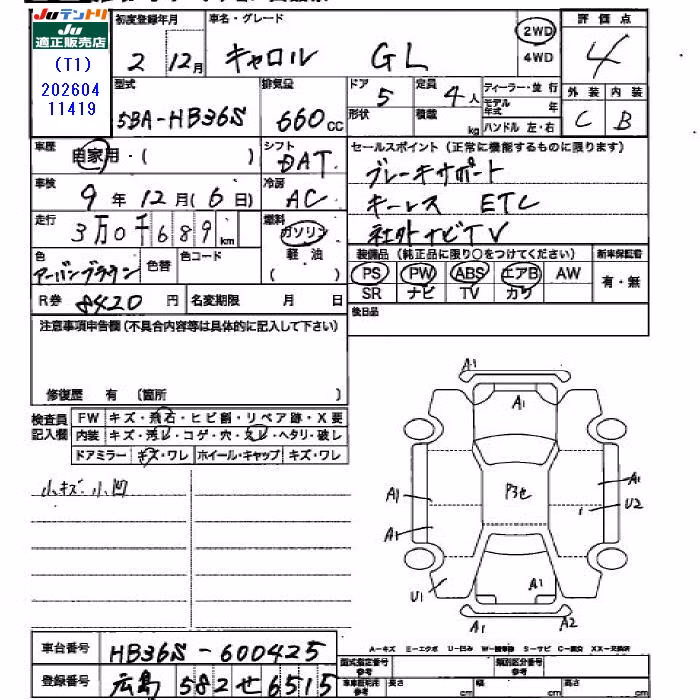 Juテントリ
Ju
適正販売店
(T1)
202604
11419
初度登録年月
2 12月
車名・グレード
キャロル GL
2WD
4WD
評価点
4
型式
5BA-HB36S
排気量
660 CC
ドア
5
形状
定員
4人
積載
kg
ディーラー・並行
モデル年式 年
ハンドル 左・右
外装
C
内装
B
車歴
自家用・( )
シフト
DAT
車検
9年12月(6日)
冷房
AC
走行
3万0千689km
燃料
ガソリン
軽油
( )
色
アーバンブラウン
色替
色コード
R券 8420円
名変期限 月 日
セールスポイント(正常に機能するものに限ります)
ブレーキサポート
キーレス ETC
社外ナビTV
装備品(純正品に限り〇をつけてください)
新車保証書
PS PW ABS エアB AW
SR ナビ TV カワ
有・無
後日品
注意事項申告欄(不具合内容等は具体的に記入して下さい)
修復歴 有 〔箇所 〕
検査員
記入欄
FW キズ・飛石・ヒビ割・リペア跡・X要
内装 キズ・汚レ・コゲ・穴・スレ・ヘタリ・破レ
ドアミラー キズ・ワレ ホイール・キャップ キズ・ワレ
小キズ 小凹
A1
A1
P3セ
A1
A1
A1
U2
U1
A1
A1
A2
A-キズ E-エクボ U-凹み W-補修跡 S-サビ C-腐食 XX-交換済
車台番号
HB36S-600425
登録番号
広島 582 せ 6515
型式指定番号
参考
類別区分番号
参考
車庫証明用
参考
長さ cm
幅 cm
高さ cm